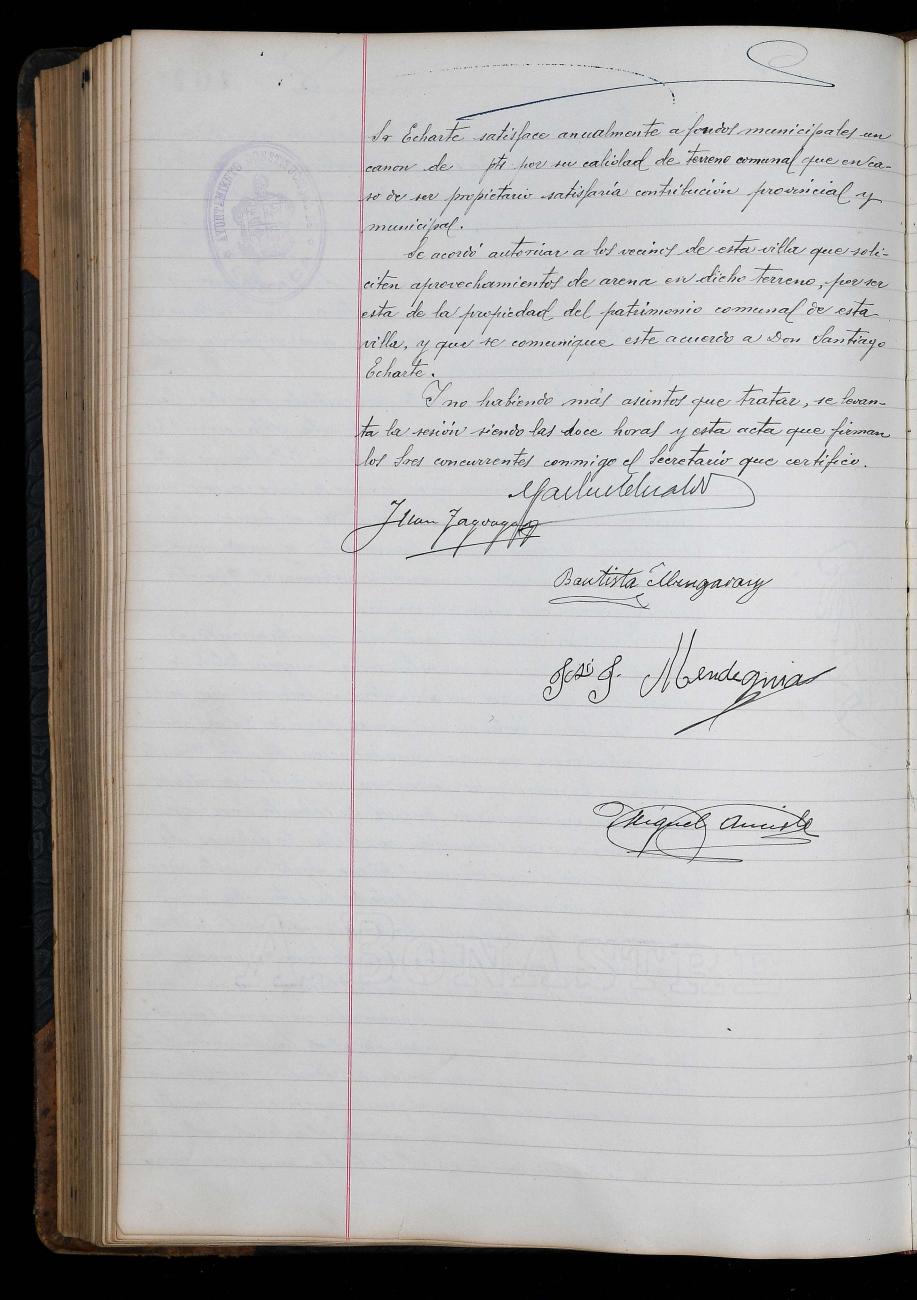 Sr Echarte satisface anualmente a fondos municipales un
canon de pts por su calidad de terreno comunal que en ca-
so de ser propietario satisfaria contribución provincial y
municipal.
Se acordó autorizar a los vecinos de esta villa que soli-
citen aprovechamientos de arena en dicho terreno, por ser
esta de la propiedad del patrimonio comunal de esta
villa, y que se comunique este acuerdo a Don Santiago
Echarte.
Y no habiendo más asuntos que tratar, se levan-
ta la sesión siendo las doce horas y esta acta que firman
los Sres concurrentes conmigo el Secretario que certifico.
Juan
Bautista
José J. Mendeguia
Miguel
AYUNTAMIENTO